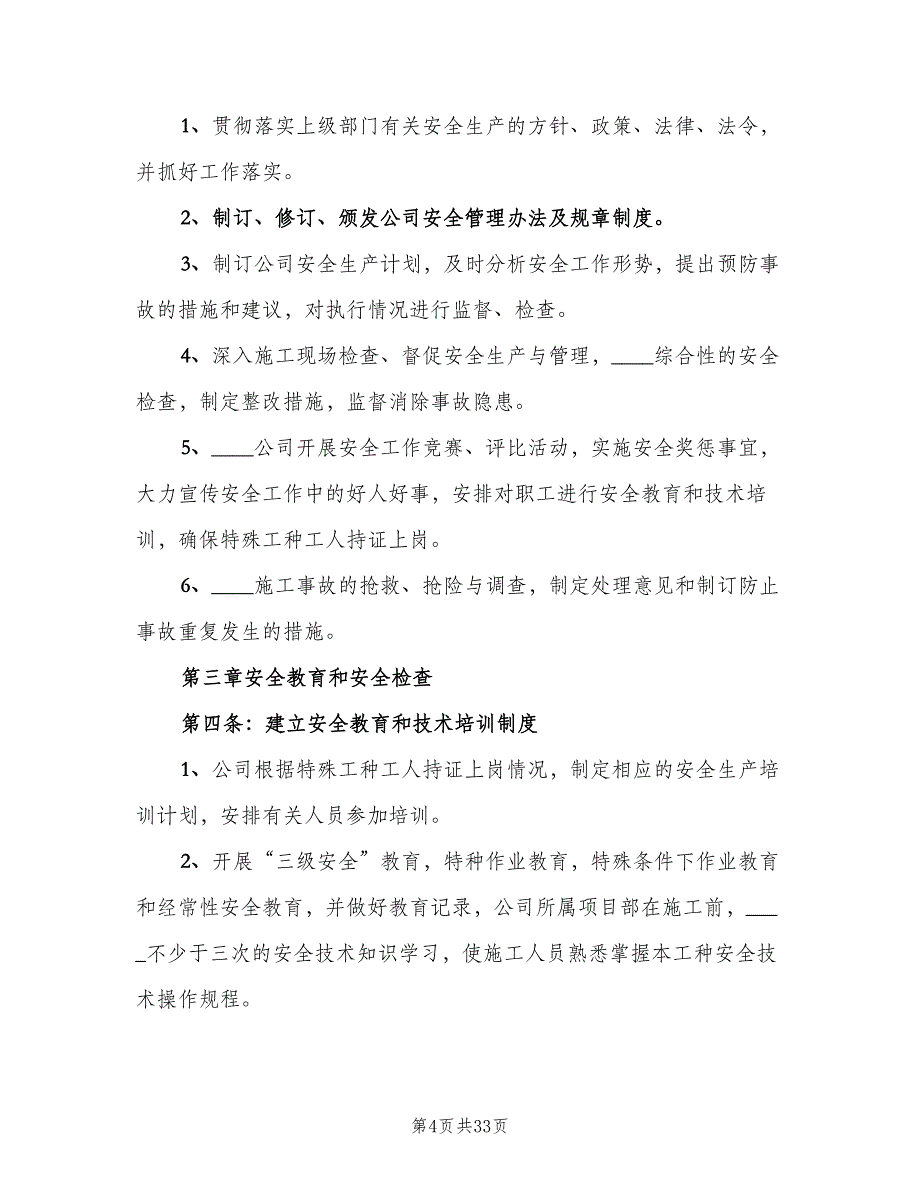 1、贯彻落实上级部门有关安全生产的方针、政策、法律、法令，
并抓好工作落实。
2、制订、修订、颁发公司安全管理办法及规章制度。
3、制订公司安全生产计划，及时分析安全工作形势，提出预防事
故的措施和建议，对执行情况进行监督、检查。
4、深入施工现场检查、督促安全生产与管理，____综合性的安全
检查，制定整改措施，监督消除事故隐患。
5、____公司开展安全工作竞赛、评比活动，实施安全奖惩事宜，
大力宣传安全工作中的好人好事，安排对职工进行安全教育和技术培
训，确保特殊工种工人持证上岗。
6、____施工事故的抢救、抢险与调查，制定处理意见和制订防止
事故重复发生的措施。
第三章安全教育和安全检查
第四条：建立安全教育和技术培训制度
1、公司根据特殊工种工人持证上岗情况，制定相应的安全生产培
训计划，安排有关人员参加培训。
2、开展“三级安全”教育，特种作业教育，特殊条件下作业教育
和经常性安全教育，并做好教育记录，公司所属项目部在施工前，___
_不少于三次的安全技术知识学习，使施工人员熟悉掌握本工种安全技
术操作规程。
第4页共33页